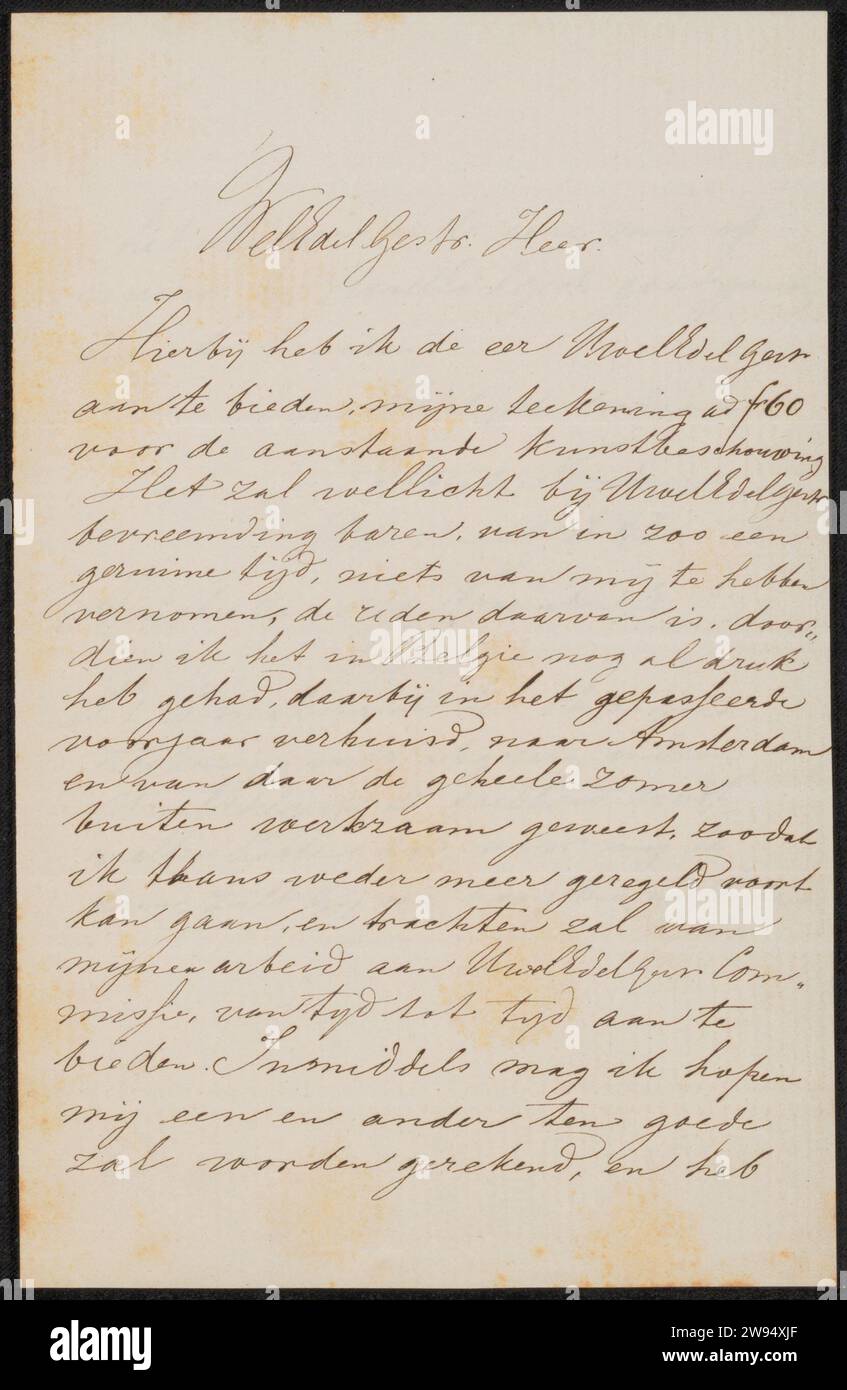 WelEdelGestr. Heer.
Hierbij heb ik de eer UwelEdelGestr
aan te bieden, mijne teekening ad f60
voor de aanstaande kunstbeschouwing
Het zal wellicht bij UwelEdelGestr
bevreemding baren, van in zoo een
geruime tijd, niets van mij te hebben
vernomen, de reden daarvan is, door„
dien ik het in Belgie nog al druk
heb gehad, daarbij in het gepasseerde
voorjaar verhuisd, naar Amsterdam
en van daar de geheele zomer
buiten werkzaam geweest, zoodat
ik thans weder meer geregeld voort
kan gaan, en trachten zal van
mijnen arbeid aan UwelEdelGestr Com„
missie, van tijd tot tijd aan te
bieden. Inmiddels mag ik hopen
mij een en ander ten goede
zal worden gerekend, en heb
alamy
a
alamy
Image ID: 2W94XJF
www.alamy.com